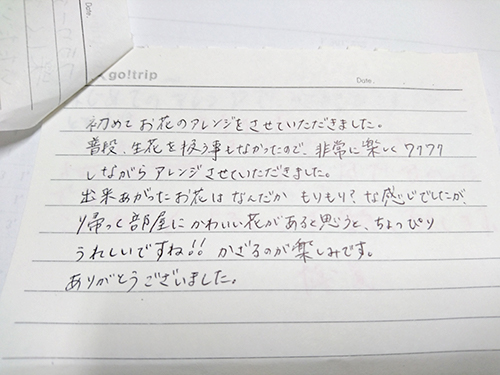 go!trip
Date.
初めてお花のアレンジをさせていただきました。
普段、生花を扱う事もなかったので、非常に楽しくワクワク
しながらアレンジさせていただきました。
出来あがったお花はなんだか もりもり？な感じでしたが、
帰って部屋にかわいい花があると思うと、ちょっぴり
うれしいですね!! かざるのが楽しみです。
ありがとうございました。